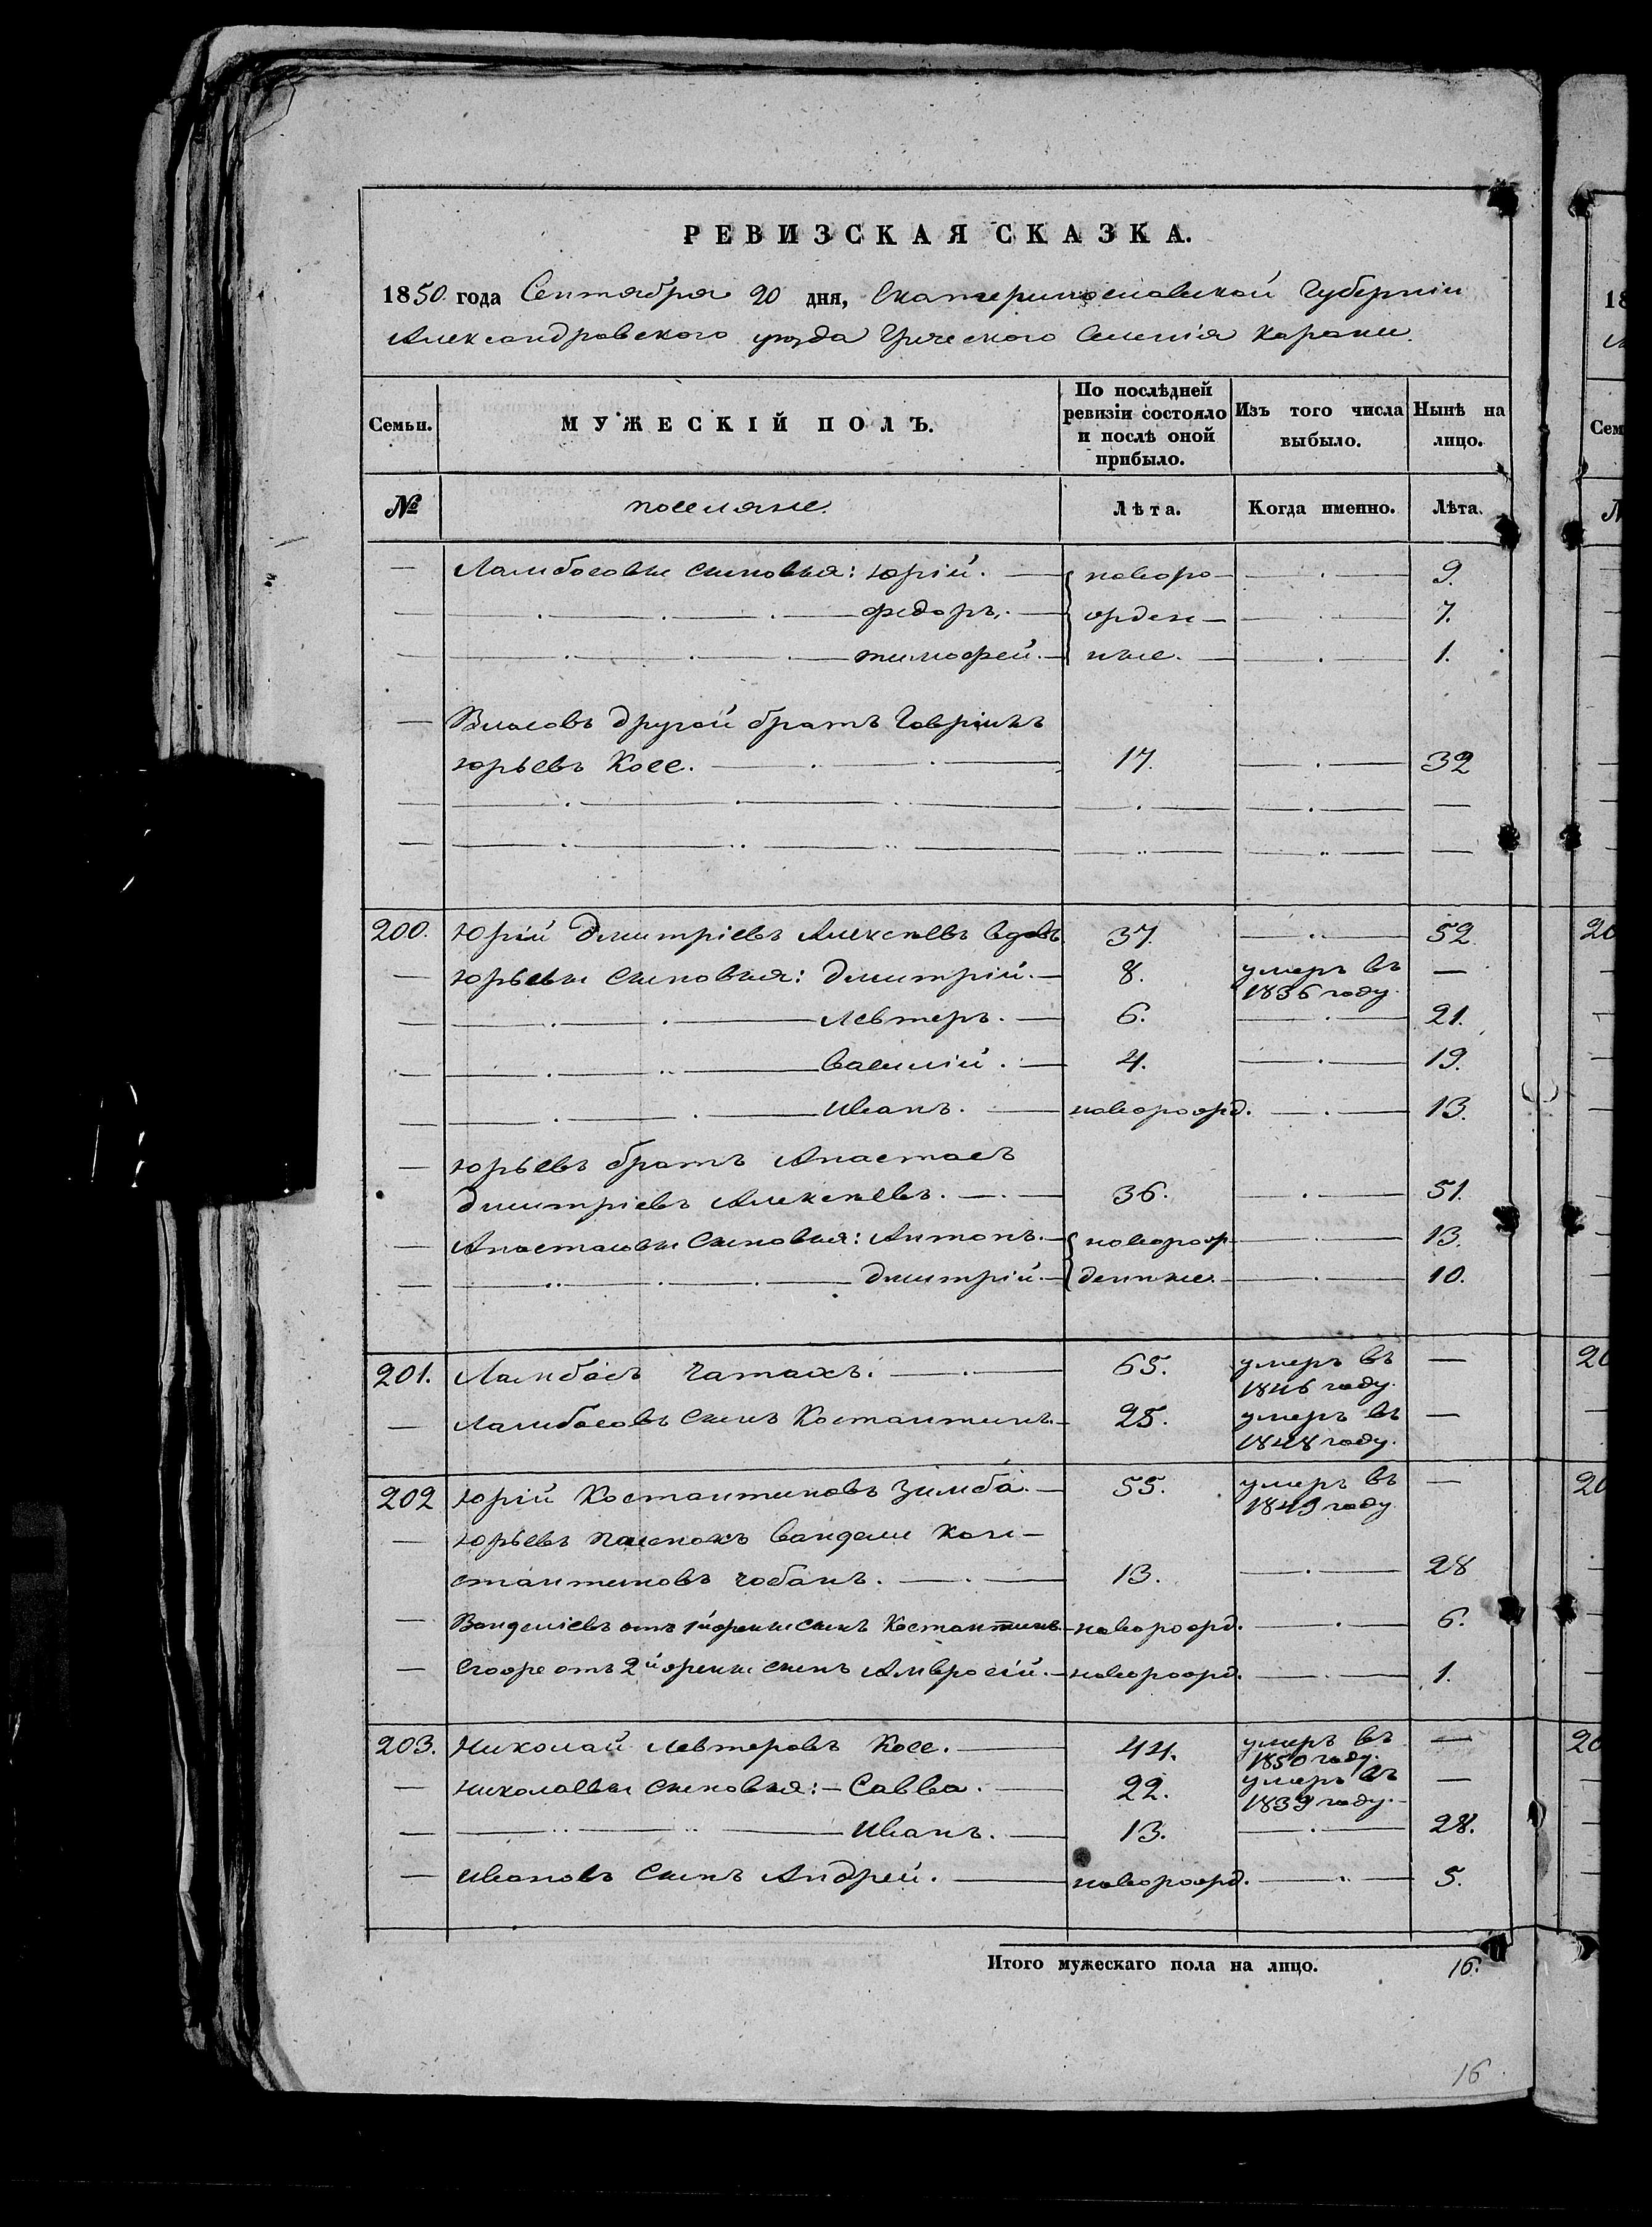 РЕВИЗСКАЯ СКАЗКА.
1850 года Сентября 20 дня, Екатеринославской Губерніи
Александровского уѣзда Греческого Селенія Карани.
Семьи. МУЖЕСКІЙ ПОЛЪ. По послѣдней ревизіи состояло и послѣ оной прибыло. Изъ того числа выбыло. Нынѣ на лицо.
№ поселяне. Лѣта. Когда именно. Лѣта.
— Ламбосовы сыновья: Юрій. — новоро— — 9.
— Федоръ. — жден— — 7.
— Тимофей. — ные. — 1.
— Власовъ другой братъ Гавріилъ
Юрьевъ Косе. — 17. — 32
200. Юрій Дмитріевъ Алексѣевъ вдовъ 37. — 52.
— Юрьевы сыновья: Дмитрій. — 8. умеръ въ 1836 году. —
— Левтеръ. — 6. — 21.
— Василій. — 4. — 19.
— Иванъ. — новорожд. — 13.
— Юрьевъ братъ Анастасъ
Дмитріевъ Алексѣевъ. — 36. — 51.
— Анастасовы сыновья: Антонъ. — новорож— — 13.
— Дмитрій. — денные. — 10.
201. Ламбосъ Чатахъ. — 65. умеръ въ 1846 году. —
— Ламбосовъ сынъ Костантинъ. — 25. умеръ въ 1848 году. —
202 Юрій Костантиновъ Зимба. — 55. умеръ въ 1849 году. —
— Юрьевъ пасынокъ Вангели Кон—
стантиновъ Чобанъ. — 13. — 28
— Вангеліевъ отъ 1й жены сынъ Костантинъ — новорожд. — 6.
— Егоже отъ 2й жены сынъ Амвросій. — новорожд. — 1.
203. Николай Левтеровъ Косе. — 44. умеръ въ 1850 году. —
— Николаевы сыновья: — Савва. — 22. умеръ въ 1839 году. —
— Иванъ. — 13. — 28.
— Ивановъ сынъ Андрей. — новорожд. — 5.
Итого мужескаго пола на лицо. 16.
16